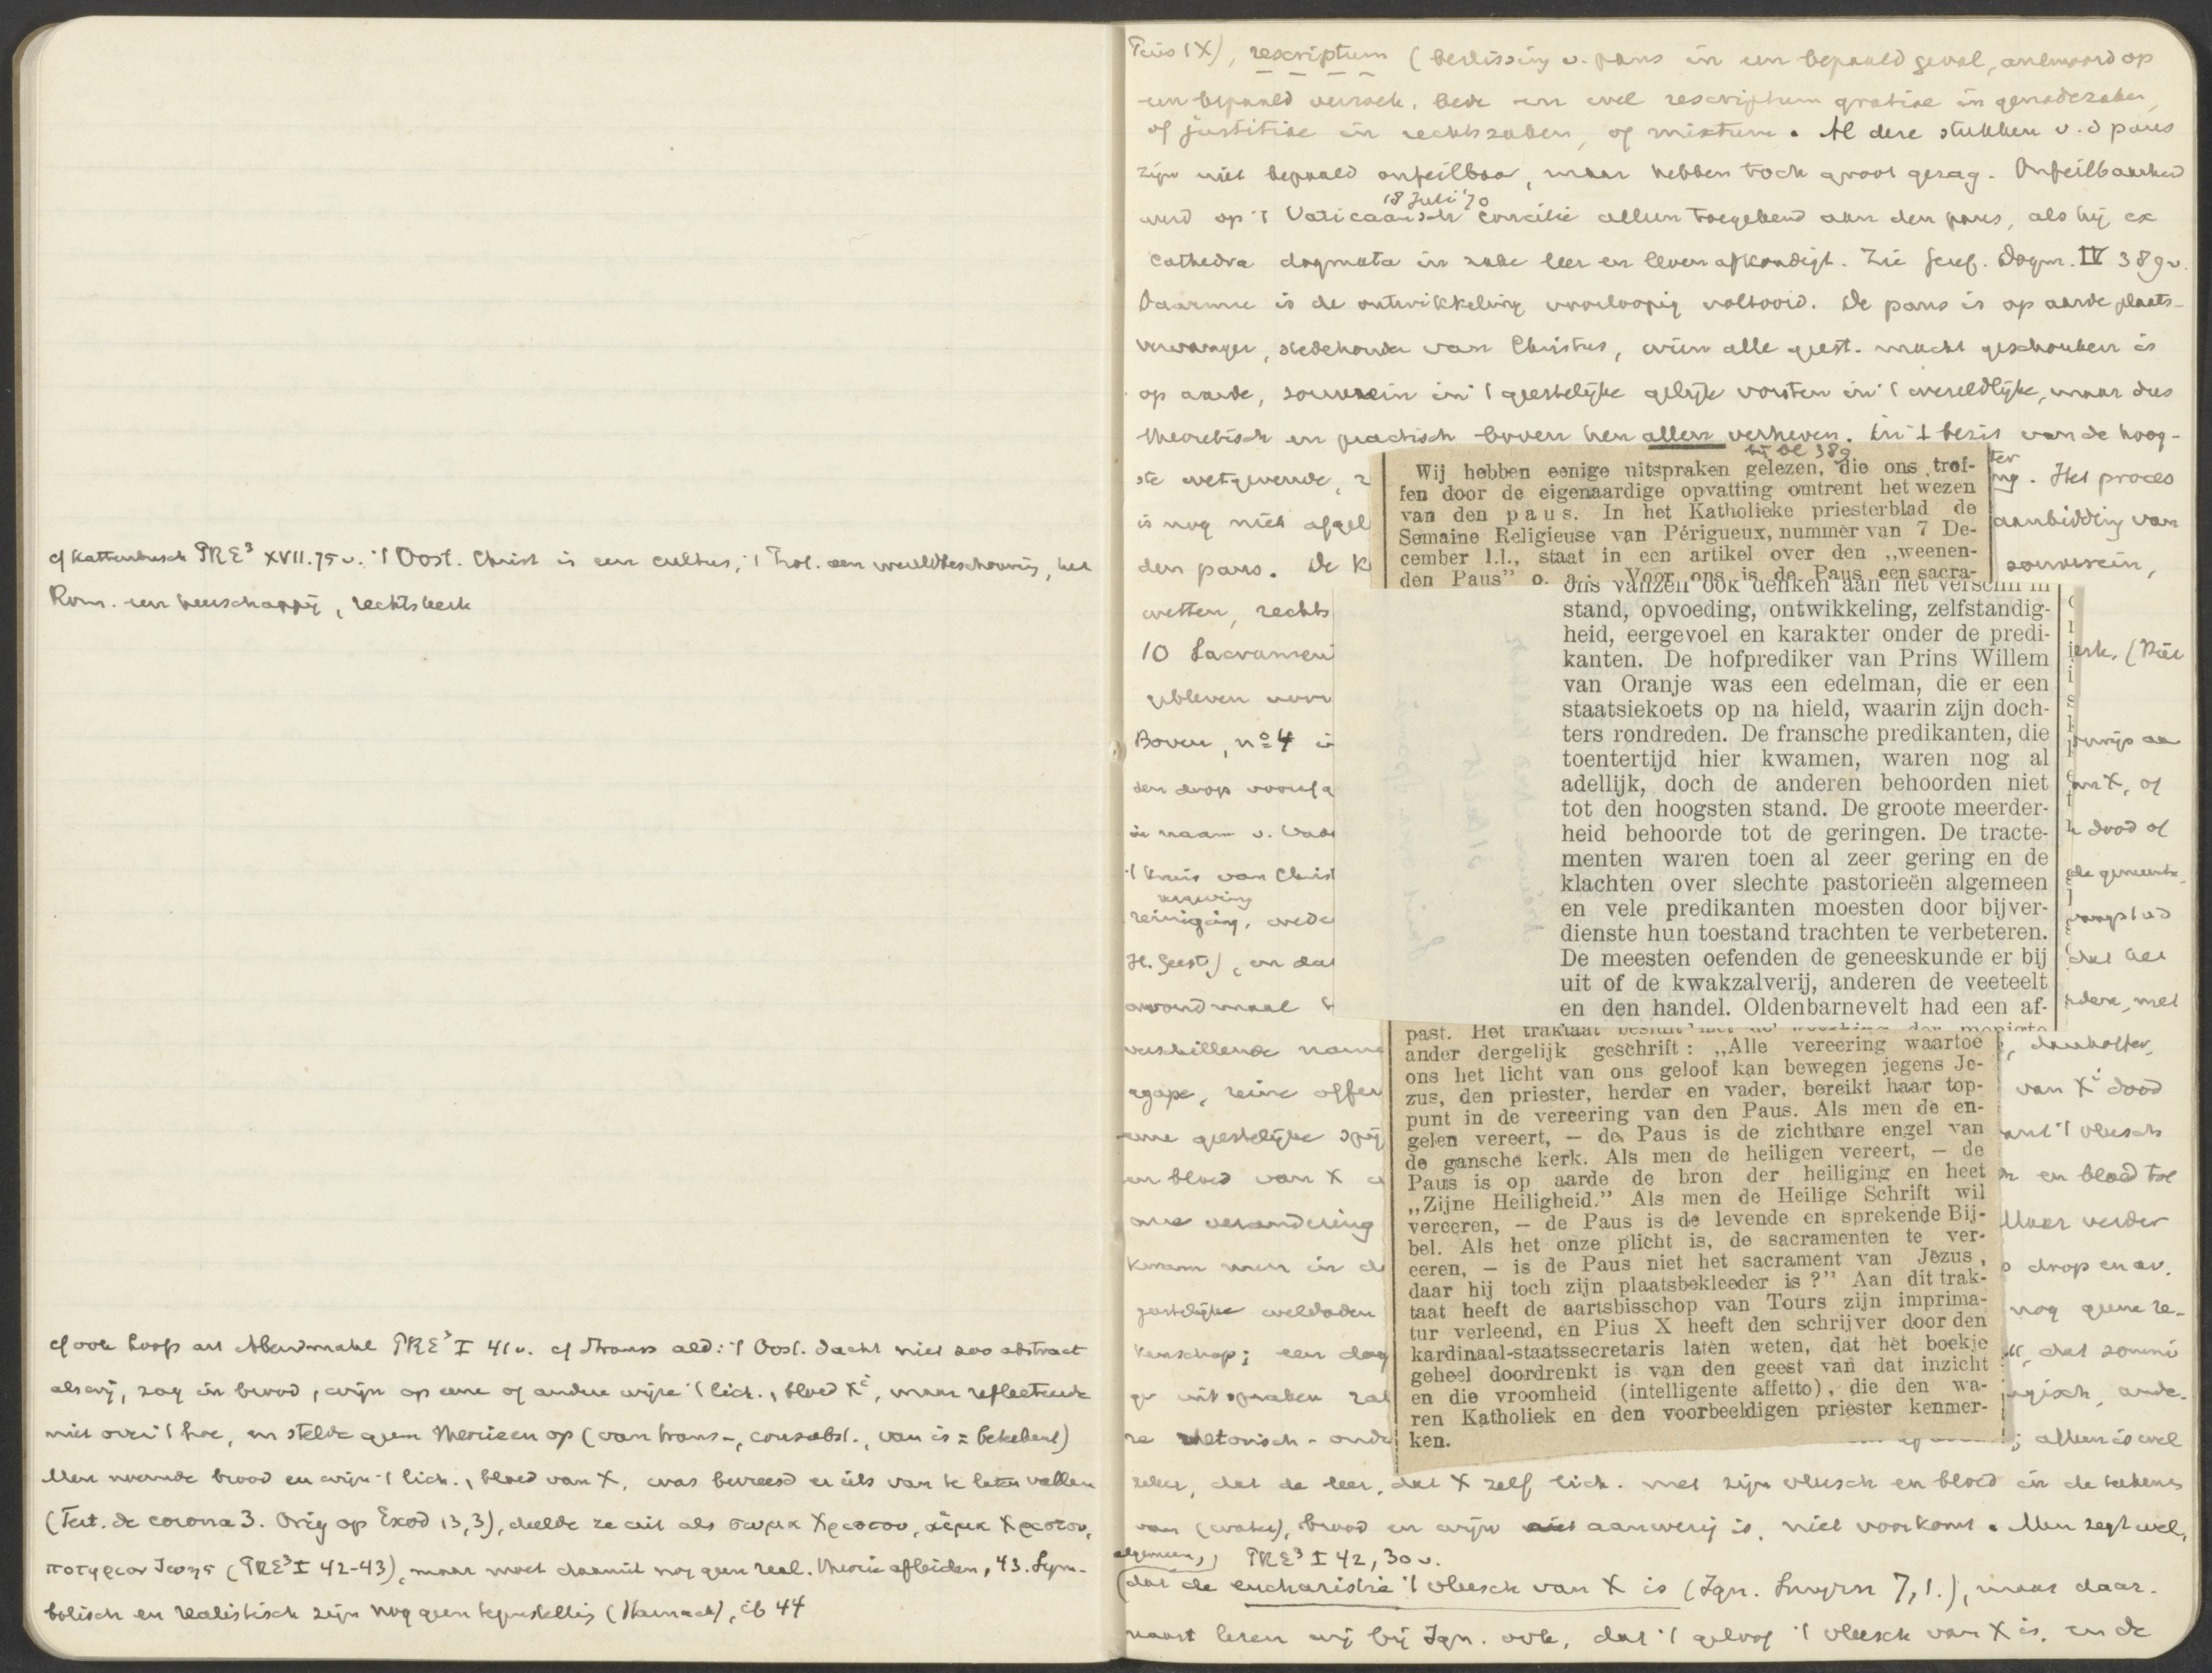 cf Kattenbusch PRE³ XVII.75v. 't Oost. Christ is een cultus, 't Prot. een wereldbeschouwing, het
Rom. een heerschappij, rechtskerk
cf ook Loofs art Abendmahl PRE³ I 41v. cf Strauss ald: 't Oost. dacht niet zoo abstract
als wij, zag in brood, wijn op eene of andere wijze 't lich., bloed Xi, maar reflecteerde
niet over 't hoe, en stelde geen theorieen op (van trans-, consubst., van is = beteekent)
Men noemde brood en wijn 't lich., bloed van X, was bevreesd er iets van te laten vallen
(Tert. de corona 3. Orig op Exod 13,3), deelde ze uit als σωμα Χριστου, αἱμα Χριστου,
ποτηριον ζωης (PRE³ I 42-43), maar moet daaruit nog geen real. theorie afleiden, 43. Sym-
bolisch en realistisch zijn nog geen tegenstelling (Harnack), ib 44
Pius IX), rescriptum (beslissing v. paus in een bepaald geval, antwoord op
een bepaald verzoek, bede en wel rescriptum gratiae in genadezaken,
of justitiae in rechtszaken, of mixtum. Al deze stukken v. d paus
zijn niet bepaald onfeilbaar, maar hebben toch groot gezag. Onfeilbaarheid
18 Juli '70
werd op 't Vaticaansch Concilie alleen toegekend aan den paus, als hij ex
cathedra dogmata in zake leer en leven afkondigt. Zie Geref. Dogm. IV 389v.
Daarmee is de ontwikkeling voorloopig voltooid. De paus is op aarde plaats-
vervanger, stedehouder van Christus, wien alle geest. macht geschonken is
op aarde, souverein in 't geestelijke gelijk vorsten in 't wereldlijke, maar dus
theoretisch en practisch boven hen allen verheven. In 't bezit van de hoog-
ste wetgevende, ng. Het proces
is nog niet afgel aanbidding van
den paus. De K souverein,
wetten, rechts
10 Sacrament erk. (Niet
gebleven voor
Boven, no 4
den doop vooraf an X, of
in naam v. Vade dood of
't kruis van Christ de gemeente
vergeving
reiniging, wede
H. Geest), en dat dat het
avondmaal dere, met
verschillende name
agape, reine offer van Xi dood
eene geestelijke spij 't vleesch
en bloed van X en bloed tot
onze verandering Maar verder
kwam men in de doop en av.
geestelijke weldaden nog geene re-
kenschap; een dog dat
ge uitspraken gisch, ande-
re rhetorisch - onde ; alleen is wel
zeker, dat de leer, dat X zelf lich. met zijn vleesch en bloed in de teekens
van (water), brood en wijn aanwezig is, niet voorkomt. Men zegt wel,
algemeen, PRE³ I 42, 30v.
(dat de eucharistie 't vleesch van X is (Ign. Smyrn 7,1.), maar daar-
naast lezen wij bij Ign. ook, dat 't geloof 't vleesch van X is, en de
bij bl 389
Wij hebben eenige uitspraken gelezen, die ons tref-
fen door de eigenaardige opvatting omtrent het wezen
van den paus. In het Katholieke priesterblad de
Semaine Religieuse van Périgueux, nummer van 7 De-
cember l.l., staat in een artikel over den „weenen-
den Paus” o. a. Voor ons is de Paus een sacra-
ons vanzelf ook denken aan het verschil in
stand, opvoeding, ontwikkeling, zelfstandig-
heid, eergevoel en karakter onder de predi-
kanten. De hofprediker van Prins Willem
van Oranje was een edelman, die er een
staatsiekoets op na hield, waarin zijn doch-
ters rondreden. De fransche predikanten, die
toentertijd hier kwamen, waren nog al
adellijk, doch de anderen behoorden niet
tot den hoogsten stand. De groote meerder-
heid behoorde tot de geringen. De tracte-
menten waren toen al zeer gering en de
klachten over slechte pastorieën algemeen
en vele predikanten moesten door bijver-
dienste hun toestand trachten te verbeteren.
De meesten oefenden de geneeskunde er bij
uit of de kwakzalverij, anderen de veeteelt
en den handel. Oldenbarnevelt had een af-
past. Het traktaat besluit met de
ander dergelijk geschrift: „Alle vereering waartoe
ons het licht van ons geloof kan bewegen jegens Je-
zus, den priester, herder en vader, bereikt haar top-
punt in de vereering van den Paus. Als men de en-
gelen vereert, — de Paus is de zichtbare engel van
de gansche kerk. Als men de heiligen vereert, — de
Paus is op aarde de bron der heiliging en heet
„Zijne Heiligheid.” Als men de Heilige Schrift wil
vereeren, — de Paus is de levende en sprekende Bij-
bel. Als het onze plicht is, de sacramenten te ver-
eeren, — is de Paus niet het sacrament van Jezus,
daar hij toch zijn plaatsbekleeder is?” Aan dit trak-
taat heeft de aartsbisschop van Tours zijn imprima-
tur verleend, en Pius X heeft den schrijver door den
kardinaal-staatssecretaris laten weten, dat het boekje
geheel doordrenkt is van den geest van dat inzicht
en die vroomheid (intelligente affetto), die den wa-
ren Katholiek en den voorbeeldigen priester kenmer-
ken.